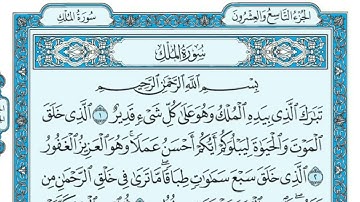 الجزء التاسع والعشرون
سورة الملك
سُورَةُ المُلْكِ
بِسْمِ اللَّهِ الرَّحْمَٰنِ الرَّحِيمِ
تَبَارَكَ الَّذِي بِيَدِهِ الْمُلْكُ وَهُوَ عَلَىٰ كُلِّ شَيْءٍ قَدِيرٌ ١ الَّذِي خَلَقَ
الْمَوْتَ وَالْحَيَاةَ لِيَبْلُوَكُمْ أَيُّكُمْ أَحْسَنُ عَمَلًا وَهُوَ الْعَزِيزُ الْغَفُورُ
٢ الَّذِي خَلَقَ سَبْعَ سَمَاوَاتٍ طِبَاقًا مَا تَرَىٰ فِي خَلْقِ الرَّحْمَٰنِ مِن